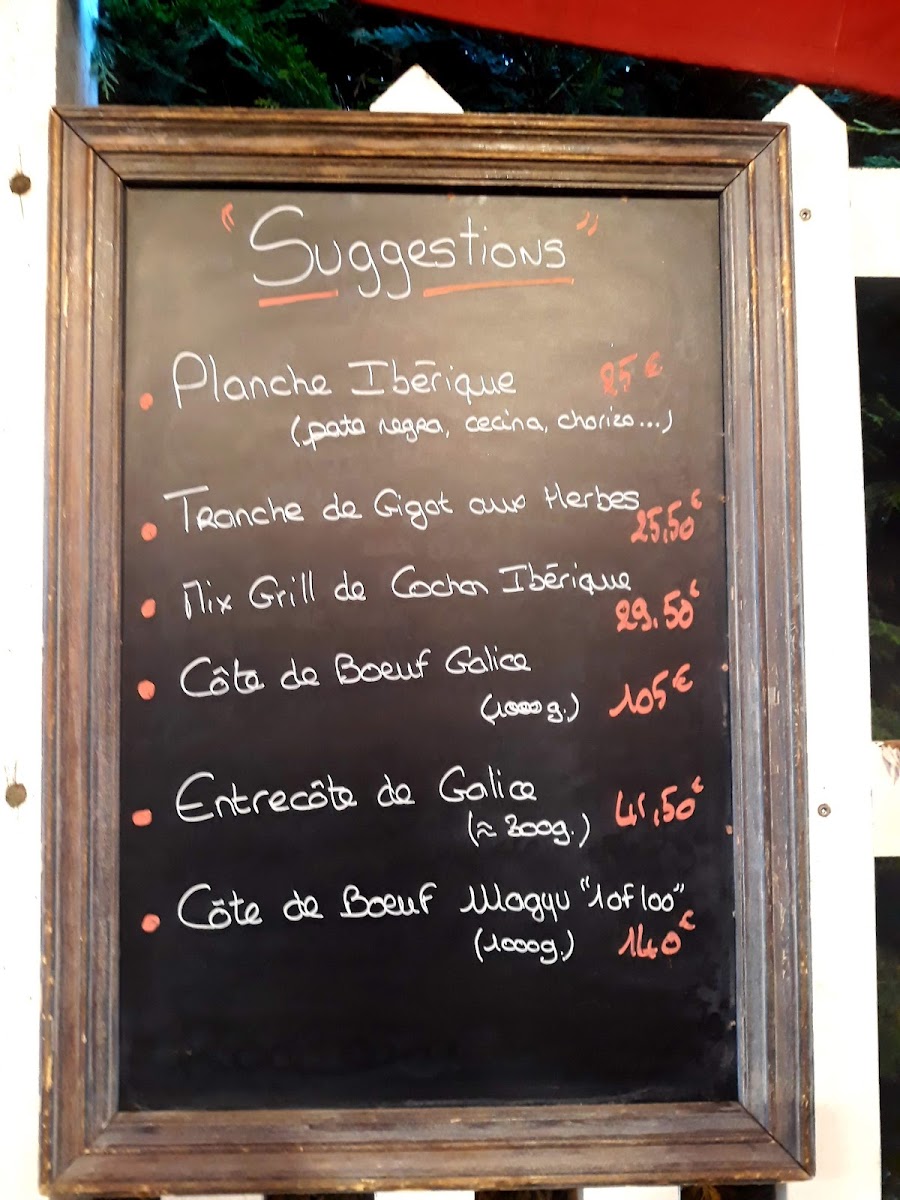 "Suggestions"
• Planche Ibérique 25€
(pata negra, cecina, chorizo...)
• Tranche de Gigot aux Herbes
25,50€
• Mix Grill de Cochon Ibérique
29,50€
• Côte de Boeuf Galice
(1000g.) 105€
• Entrecôte de Galice
(≈ 300g.) 41,50€
• Côte de Boeuf Wagyu "1of100"
(1000g.) 140€